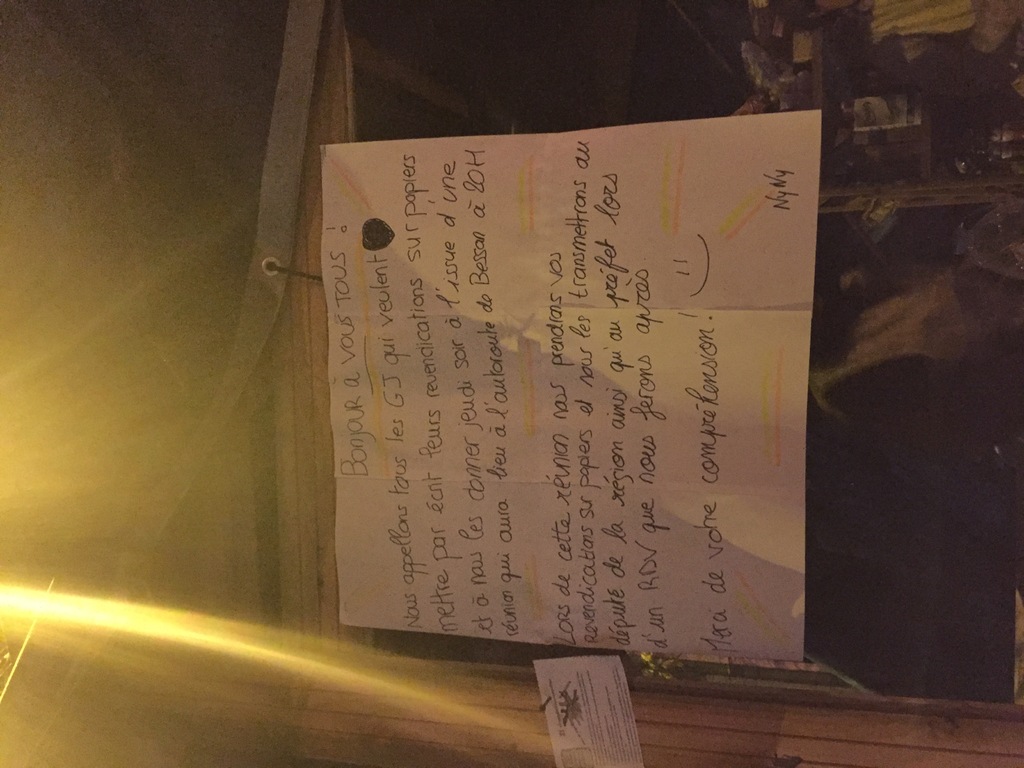 Bonjour à vous tous !
Nous appellons tous les GJ qui veulent
mettre par écrit leurs revendications sur papiers
et à nous les donner jeudi soir à l'issue d'une
réunion qui aura lieu à l'autoroute de Bessan à 20H
Lors de cette réunion nous prendrons vos
revendications sur papiers et nous les transmettrons au
député de la région ainsi qu'au préfet lors
d'un RDV que nous ferons après.
Merci de votre compréhension!
NyNy